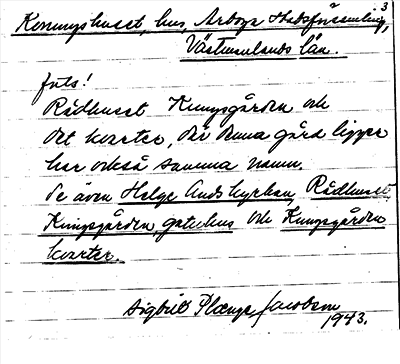 3
Konungshuset, hus, Arboga Stadsförsamling,
Västmanlands län.
fots!
Rådhuset Kungsgården och
det kvarter, där denna gård ligger
har också samma namn.
Se även Helge Ands kyrkan, Rådhuset,
Kungsgården, gatuhus och Kungsgården
kvarter.
Sigbrit Plænge Jacobson
1943.